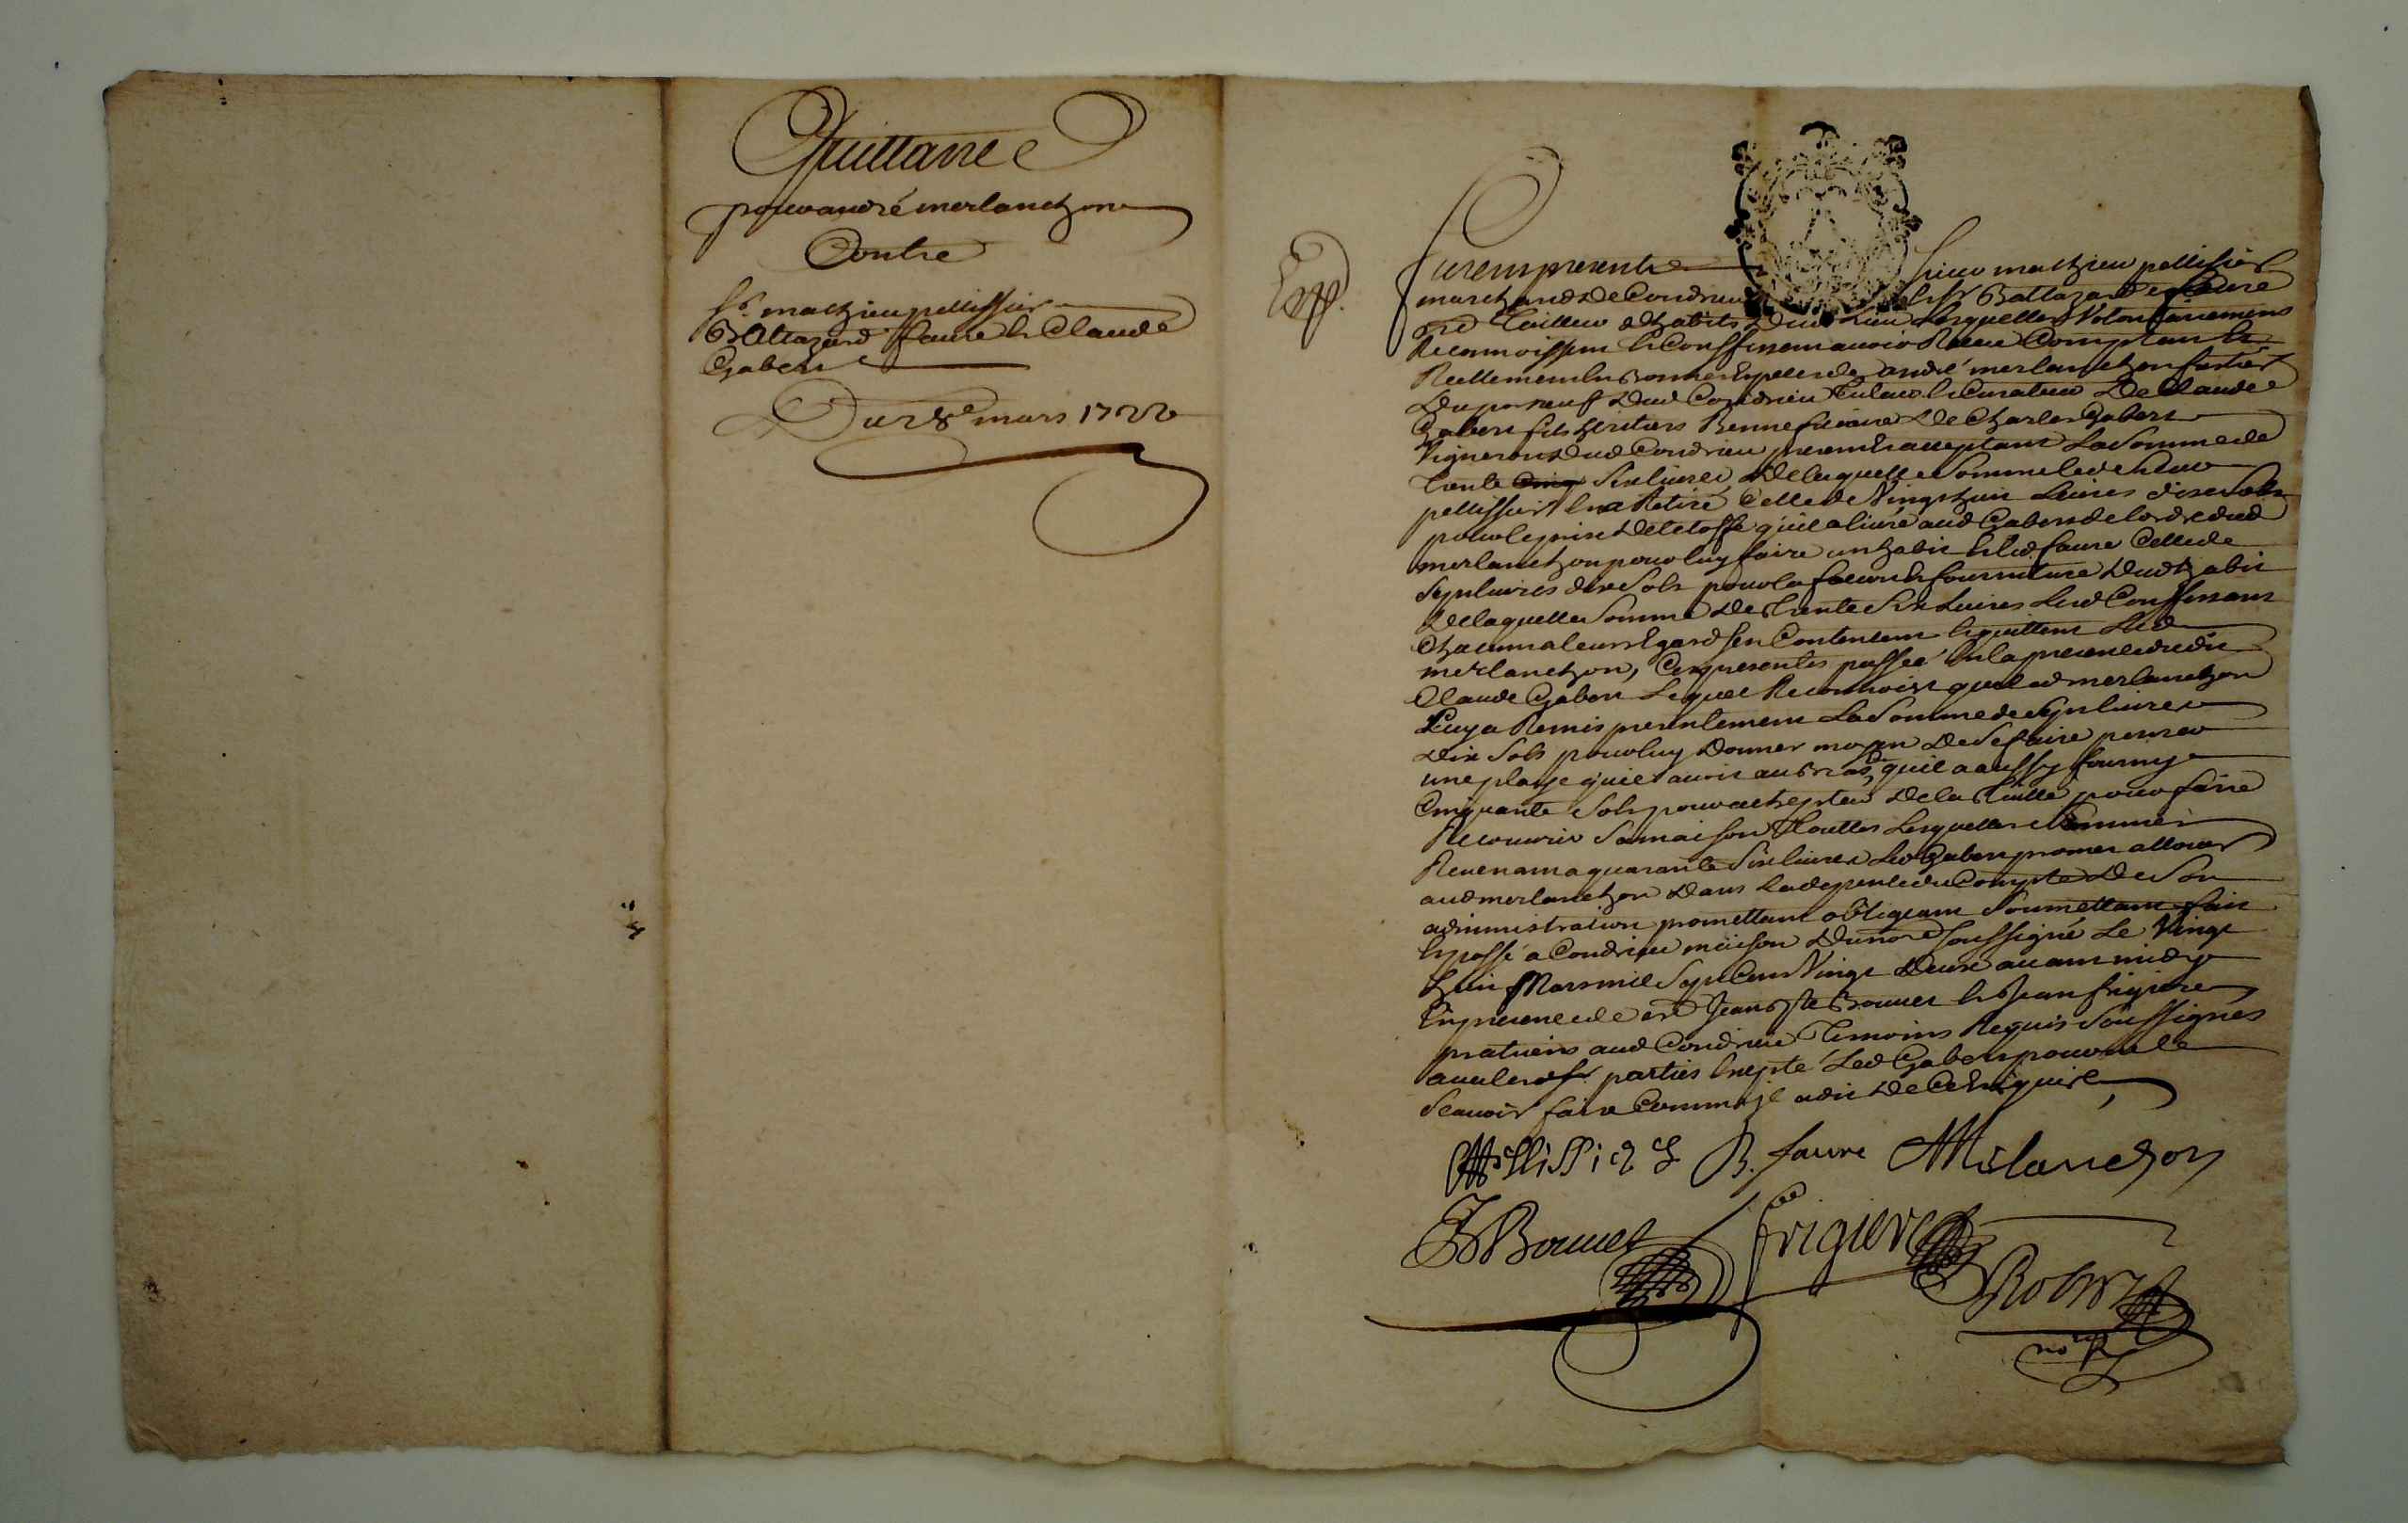 Quittance
pour andré merlanchon
Contre
Sr. mathieu pellissier
Baltazard faure & Claude
Gabert
Du 28e mars 1722
Exp.
Furent presents Sieur mathieu pellissier
marchand de Condrieu & Sr Baltazard faure
me tailleur dhabits dud lieu Lesquelles Volontairement
Reconnoissent & Confessent auoir Receu Comptant &
Reellement en bonnes Especes de andré merlanchon
dud Condrieu tuteur & Curateur De Claude
Gabert fils heritiers Bennefficiaire de Charles Gabert
Vigneron dud Condrieu present & acceptant La Somme de
trente cinq Six liures De laquelle Somme led Sieur
pellissier En a Retiré Celle de Vingt huit Liures dix Sols
pour le prix de letoffe quil a liuré aud Gabert de lordre dud
merlanchon pour luy faire un habit & led faure Celle de
Sept liures dix Sols pour la facon & fourniture dud habit
De laquelle Somme De trente Six Liures Lesd Confessant
Chacun a leurs Egard Sen Contentent & quittent Led
merlanchon, Ces presentes passée En la presence dudit
Claude Gabert Lequel Reconnoist que led merlanchon
Luy a Remis presentement La Somme de Sept liures
dix Sols pour luy donner moyen De Se faire penser
une playe quil auoit au bras, quil a aussy fourny
Cinquante Sols pour achepter De la thuille pour faire
Recouvrir Sa maison Touttes Lesquelles Sommes
Reuenant a quarante Six liures Led Gabert promet allouer
aud merlanchon Dans la depense du Compte De Son
administration promettant obligeant Soumettant fait
& passé a Condrieu maison du nore Soussigné Le Vingt
huit Mars mil Sept Cent Vingt Deux auant midy
En presence de me Jean Bte Bonnet & Jean frigiere
praticiens aud Condrieu temoins Requis Soussignés
auec lesd parties Excepté Led Gabert pour ne le
Scauoir faire Comme jl a dit De Ce Enquis
M Pellissier B. faure A Merlanchon
JB Bonnet frigiere
Robert
nore